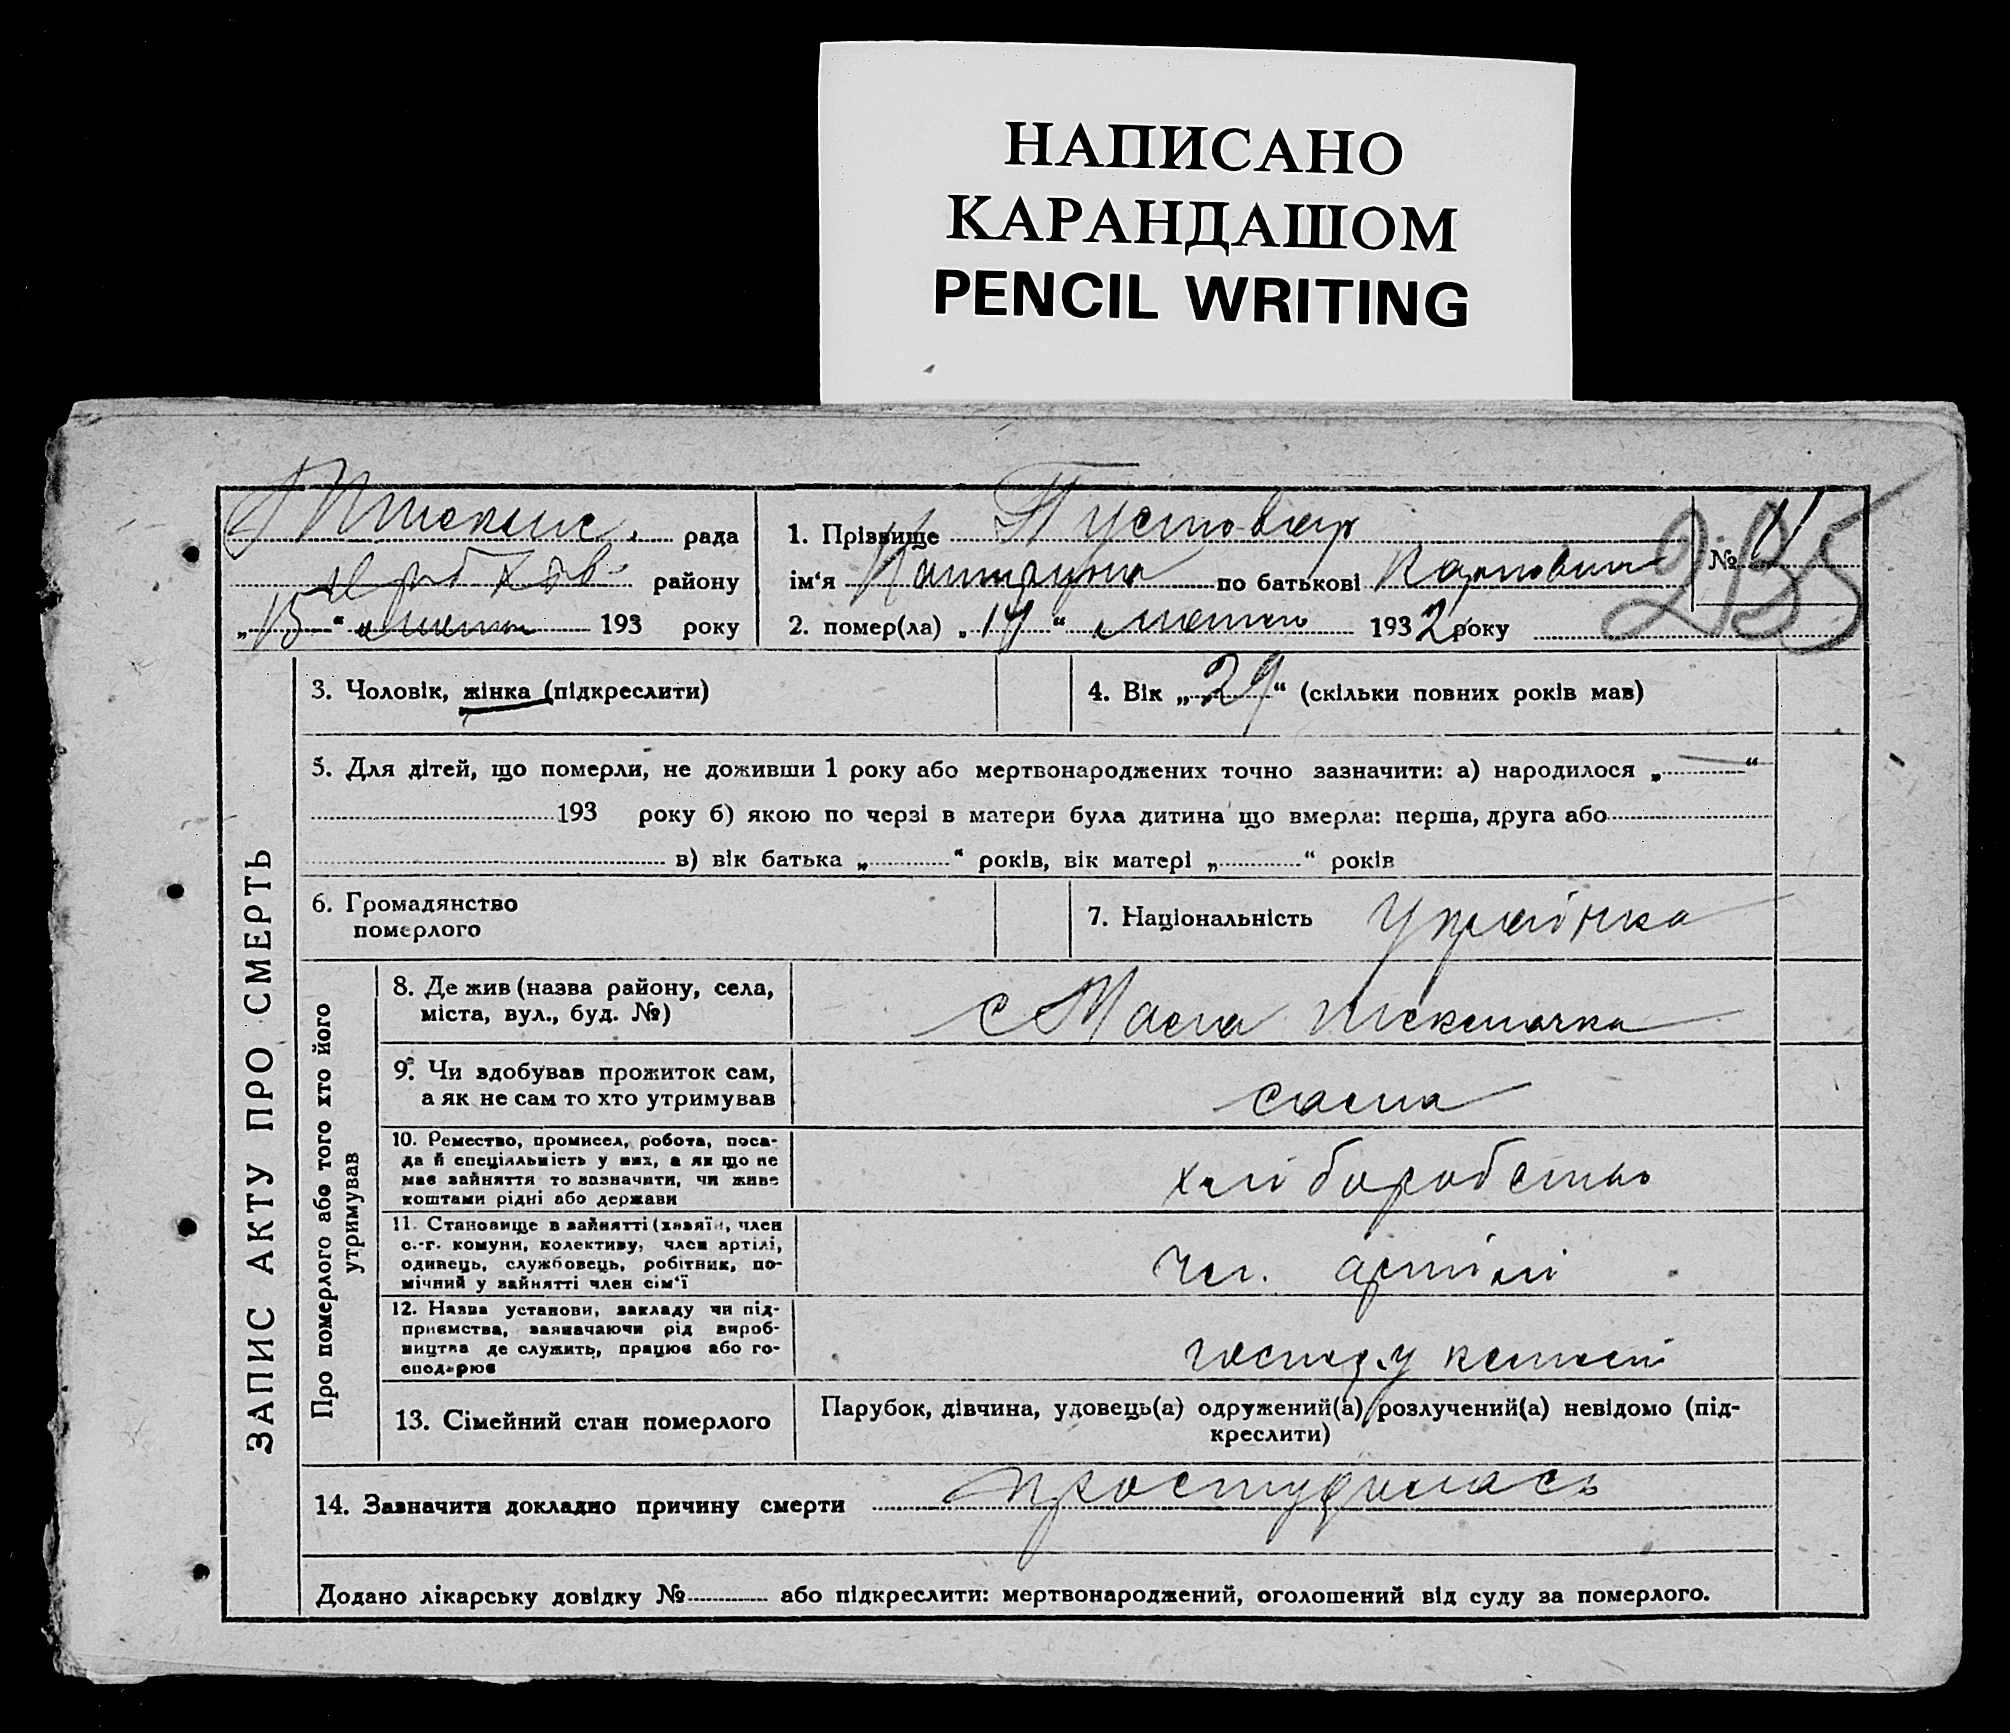 НАПИСАНО
КАРАНДАШОМ
PENCIL WRITING
рада
району
„15“ лютого 193 року
1. Прізвище Пустовар
ім‘я Катерина по батькові Карповна
2. помер(ла) „14“ лютого 1932 року
№ 11
235
ЗАПИС АКТУ ПРО СМЕРТЬ
3. Чоловік, жінка (підкреслити)
4. Вік „29“ (скільки повних років мав)
5. Для дітей, що померли, не доживши 1 року або мертвонароджених точно зазначити: а) народилося „ “
193 року б) якою по черзі в матери була дитина що вмерла: перша, друга або
в) вік батька „ “ років, вік матері „ “ років
6. Громадянство
померлого
7. Національність Українка
Про померлого або того хто його
утримував
8. Де жив (назва району, села,
міста, вул., буд. №)
с Мала
9. Чи здобував прожиток сам,
а як не сам то хто утримував
сама
10. Ремество, промисел, робота, поса-
да й спеціяльність у них, а як що не
має зайняття то зазначити, чи живе
коштами рідні або держави
хліборобство
11. Становище в зайнятті (хазяїн, член
с.-г. комуни, колективу, член артілі,
одинець, службовець, робітник, по-
мічний у зайнятті член сім‘ї
чл. артілі
12. Назва установи, закладу чи під-
приємства, зазначаючи рід вироб-
ництва де служить, працює або го-
сподарює
господ. у
13. Сімейний стан померлого
Парубок, дівчина, удовець(а) одружений(а) розлучений(а) невідомо (під-
креслити)
14. Зазначити докладно причину смерти простудилась
Додано лікарську довідку № або підкреслити: мертвонароджений, оголошений від суду за померлого.